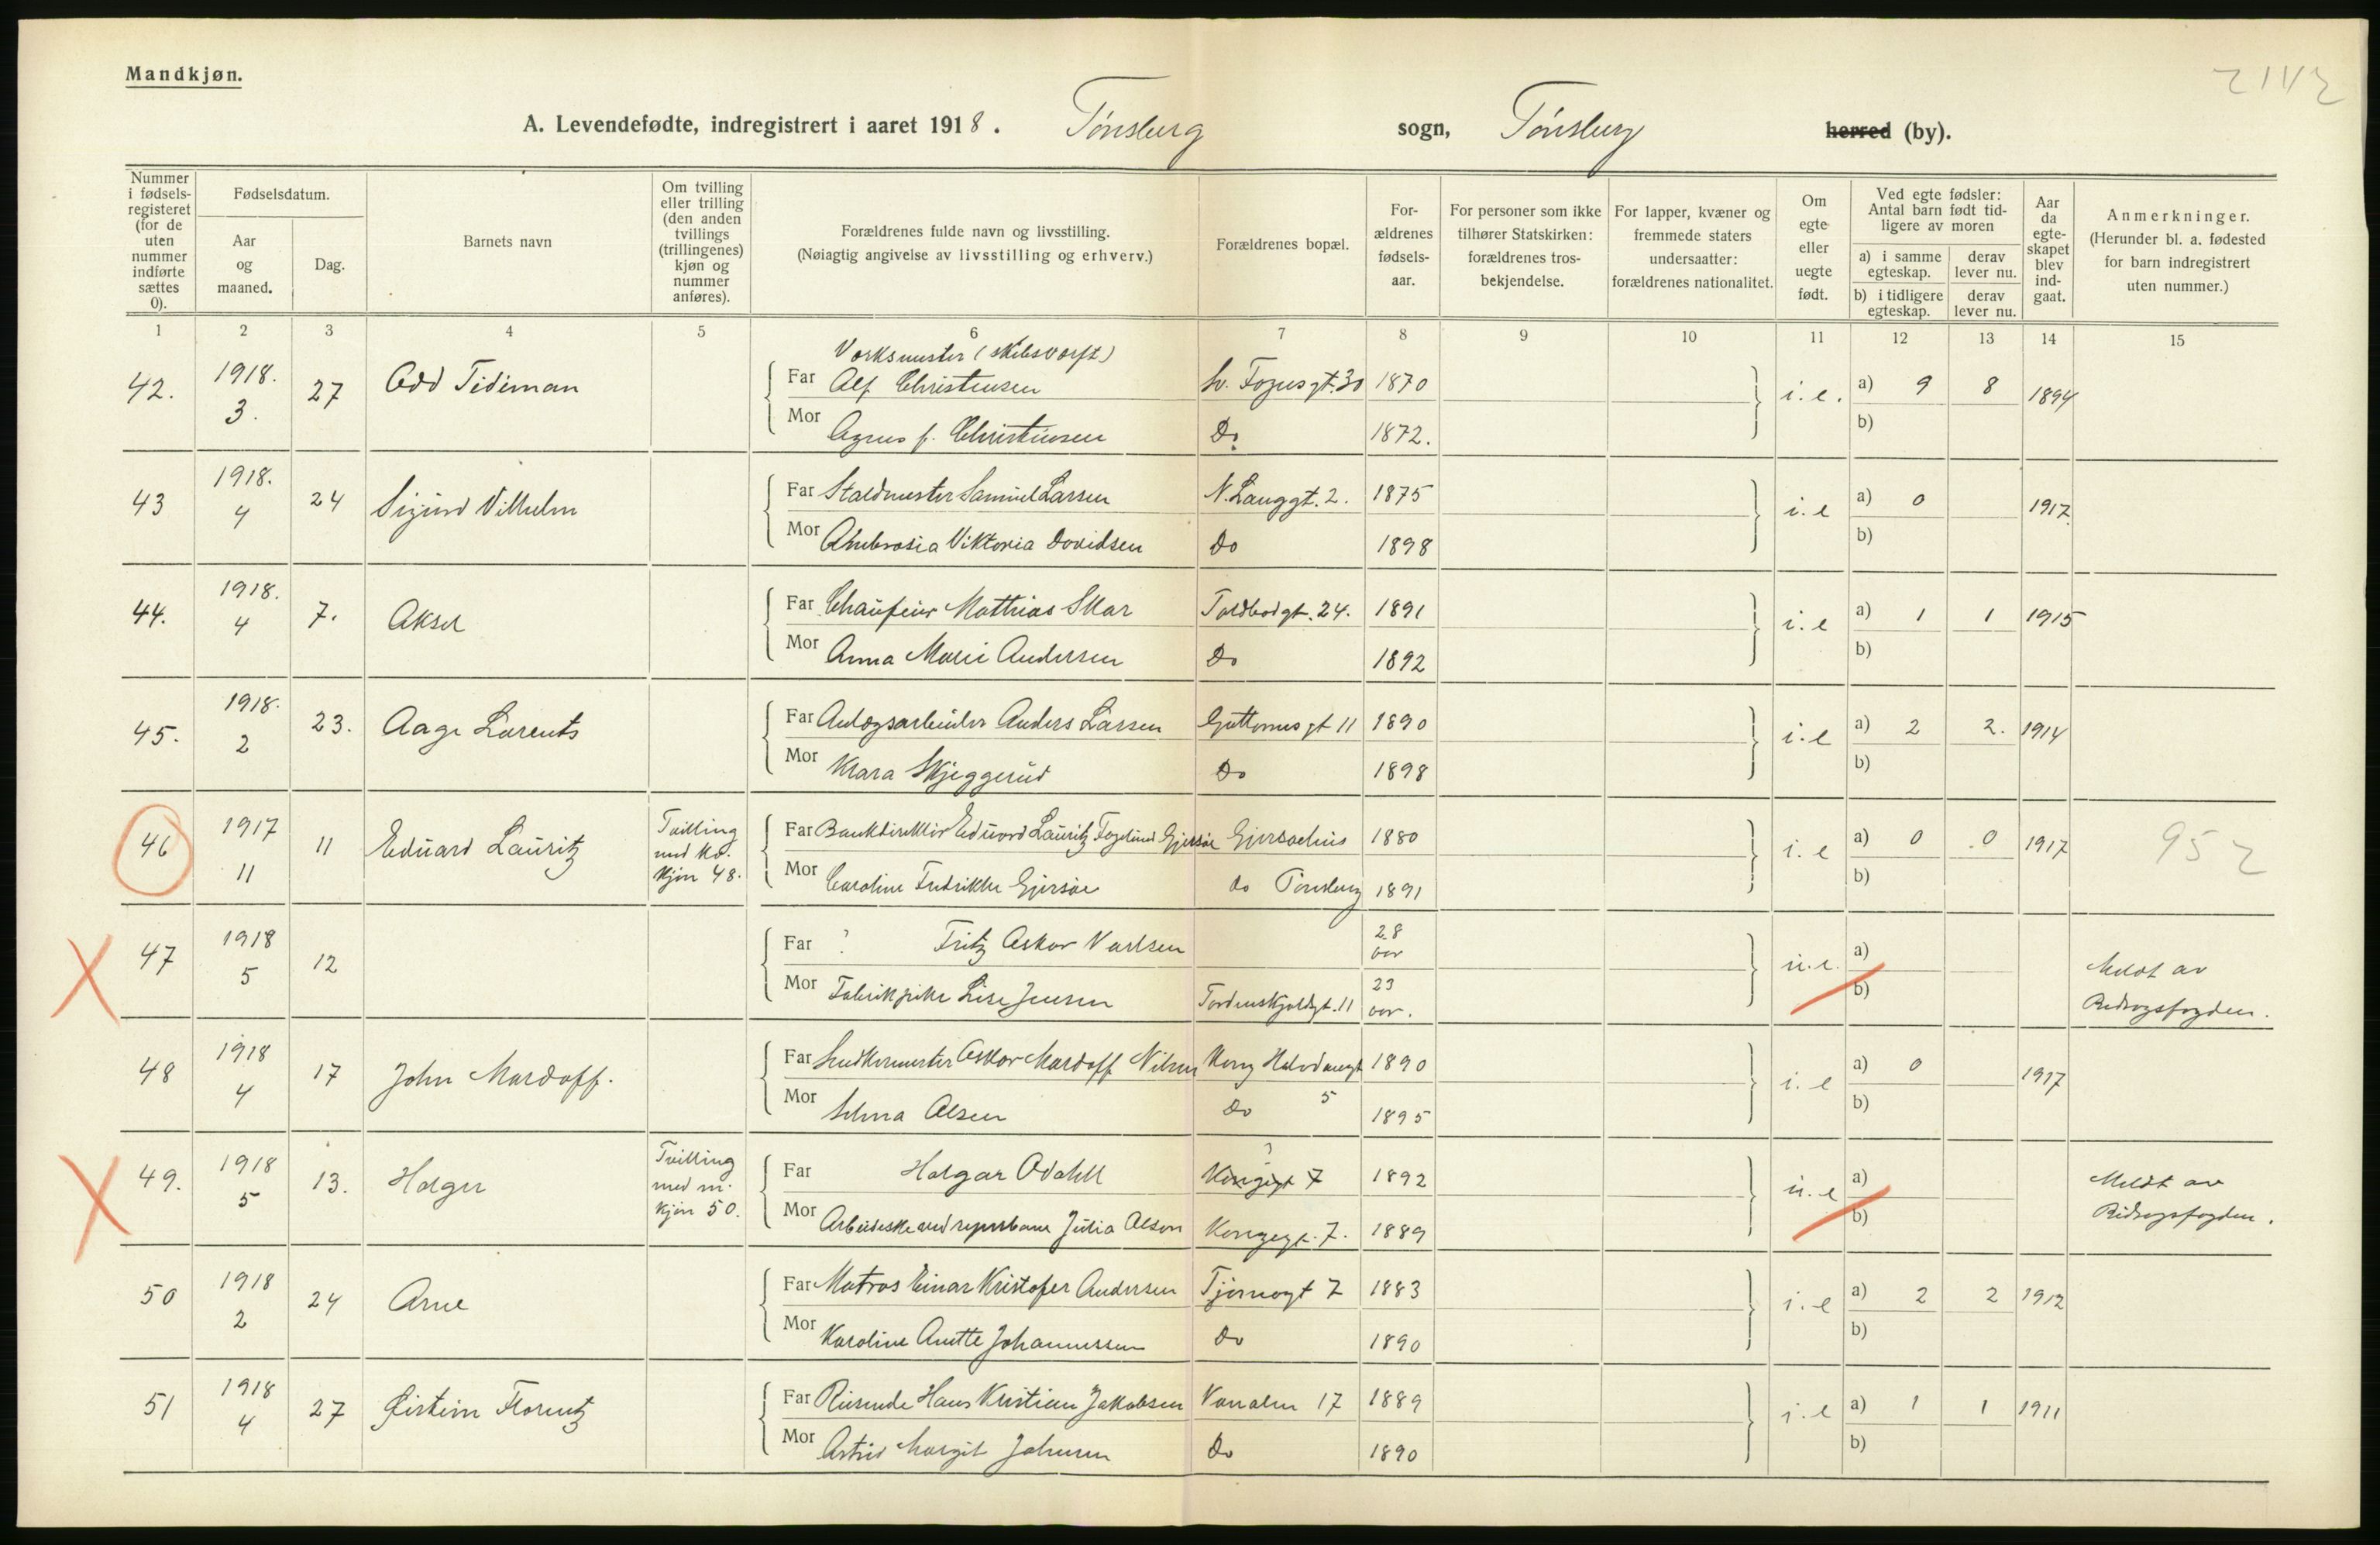 Mandkjøn.
2142
A. Levendefødte, indregistrert i aaret 1918. Tønsberg sogn, Tønsberg herred (by).
Nummer i fødselsregisteret (for de uten nummer indførte sættes 0).
Fødselsdatum.
Aar og maaned.
Dag.
Barnets navn
Om tvilling eller trilling (den anden tvillings (trillingenes) kjøn og nummer anføres).
Forældrenes fulde navn og livsstilling.
(Nøiagtig angivelse av livsstilling og erhverv.)
Forældrenes bopæl.
Forældrenes fødselsaar.
For personer som ikke tilhører Statskirken: forældrenes trosbekjendelse.
For lapper, kvæner og fremmede staters undersaatter: forældrenes nationalitet.
Om egte eller uegte født.
Ved egte fødsler: Antal barn født tidligere av moren
a) i samme egteskap. derav lever nu.
b) i tidligere egteskap. derav lever nu.
Aar da egteskapet blev indgaat.
Anmerkninger.
(Herunder bl. a. fødested for barn indregistrert uten nummer.)
1 2 3 4 5 6 7 8 9 10 11 12 13 14 15
Verksmester (skibsverft)
42. 1918. 3. 27 Odd Tidiman Far Alf Christensen 30 1870 i. e. a) 9 8 1894
Mor Agnes f. Christensen Do 1872. b)
43 1918. 4 24 Sigurd Vilhelm Far Staldmester Samuel Larsen N. Langgt. 2. 1875 i. e a) 0 1917
Mor Ambrosia Viktoria Davidsen Do 1898 b)
44. 1918. 4 7. Aksel Far Chauffeur Mathias Skar Toldbodgt. 24. 1891 i. e a) 1 1 1915
Mor Anna Marie Andersen Do 1892 b)
45. 1918. 2 23. Aage Lorents Far Anlægsarbeider Anders Larsen Guttormsgt 11 1890 i. e a) 2 2. 1914
Mor Klara Skjeggerud Do 1898 b)
46 1917 11 11 Eduard Lauritz Tvilling med kv. kjøn 48. Far Bankdirektør Eduard Lauritz Gjersøe 1880 i. e a) 0 0 1917 952
Mor Caroline Fredrikke Gjersøe do Tønsberg 1891 b)
47 1918 5 12 Far ? Fritz Oskar Karlsen 28 aar u. e. a) Meldt av
Mor Fabrikpike Lise Jensen Tordenskjoldsgt. 11 23 aar. b) Bidragsfogden.
48 1918 4 17 John Mardoff. Far Oskar Mardoff Nilsen Kong Halvdansgt 1890 i. e a) 0 1917
Mor Selma Olsen Do 5 1895 b)
49. 1918 5 13. Holger Tvilling med m. kjøn 50. Far Holgar Odahll ? Kongegt 7 1892 u. e a) Meldt av
Mor Arbeiderske ved repslbane Julia Olsen Kongegt. 7. 1889 b) Bidragsfogden.
50 1918 2 24 Arne Far Matros Einar Kristofer Andersen 7 1883 i. e a) 2 2 1912
Mor Karoline Anette Johannessen Do 1890 b)
51 1918 4 27 Øistein Florentz Far Reisende Hans Kristian Jakobsen 17 1889 i. e a) 1 1 1911
Mor Astrid Margit Johnsen Do 1890 b)